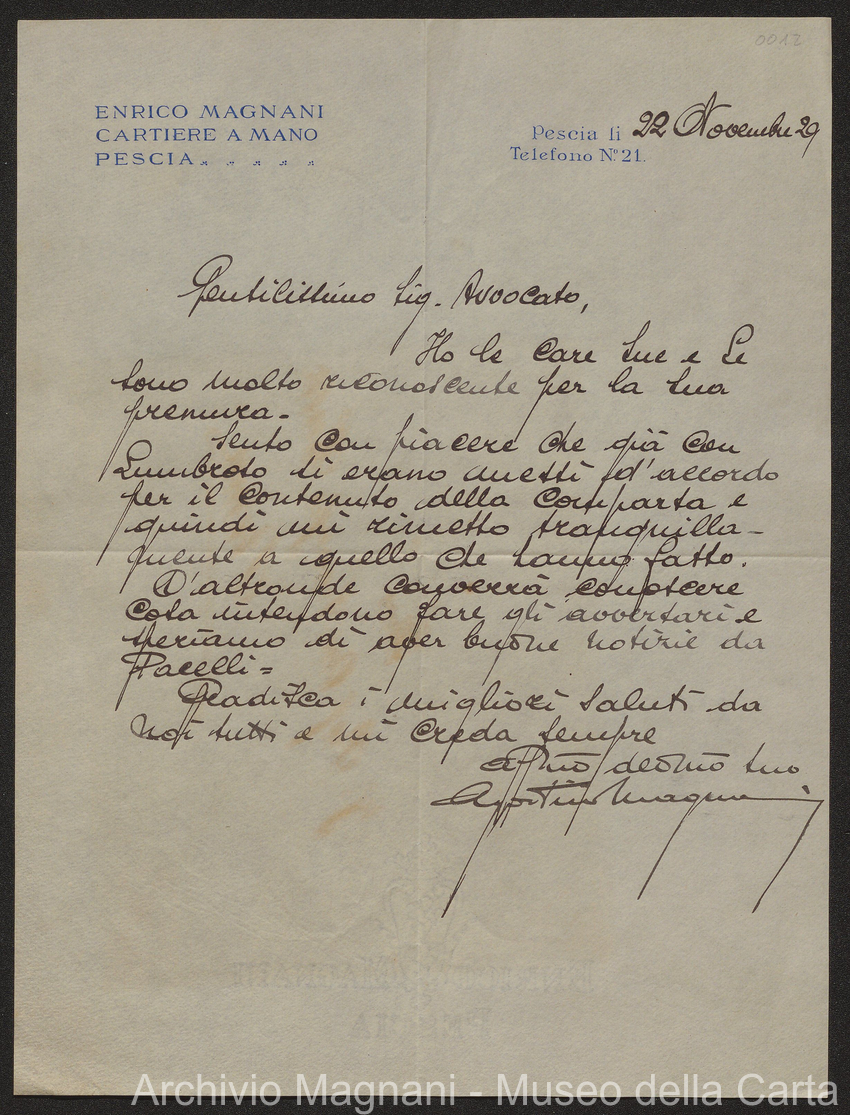 0012
ENRICO MAGNANI
CARTIERE A MANO
PESCIA
Pescia li 22 Novembre 29
Telefono Nº 21.
Gentilissimo Sig. Avvocato,
Ho le care Sue e Le
sono molto riconoscente per la Sua
premura.
Sento con piacere che già con
Lumbroso si erano messi d'accordo
per il contenuto della comparsa e
quindi mi rimetto tranquilla-
mente a quello che hanno fatto.
D'altronde converrà conoscere
cosa intendono fare gli avversari e
speriamo di aver buone notizie da
Pacelli =
Gradisca i migliori saluti da
noi tutti e mi creda sempre
affmo devmo suo
Magnani
ENRICO MAGNANI
PESCIA
Archivio Magnani - Museo della Carta